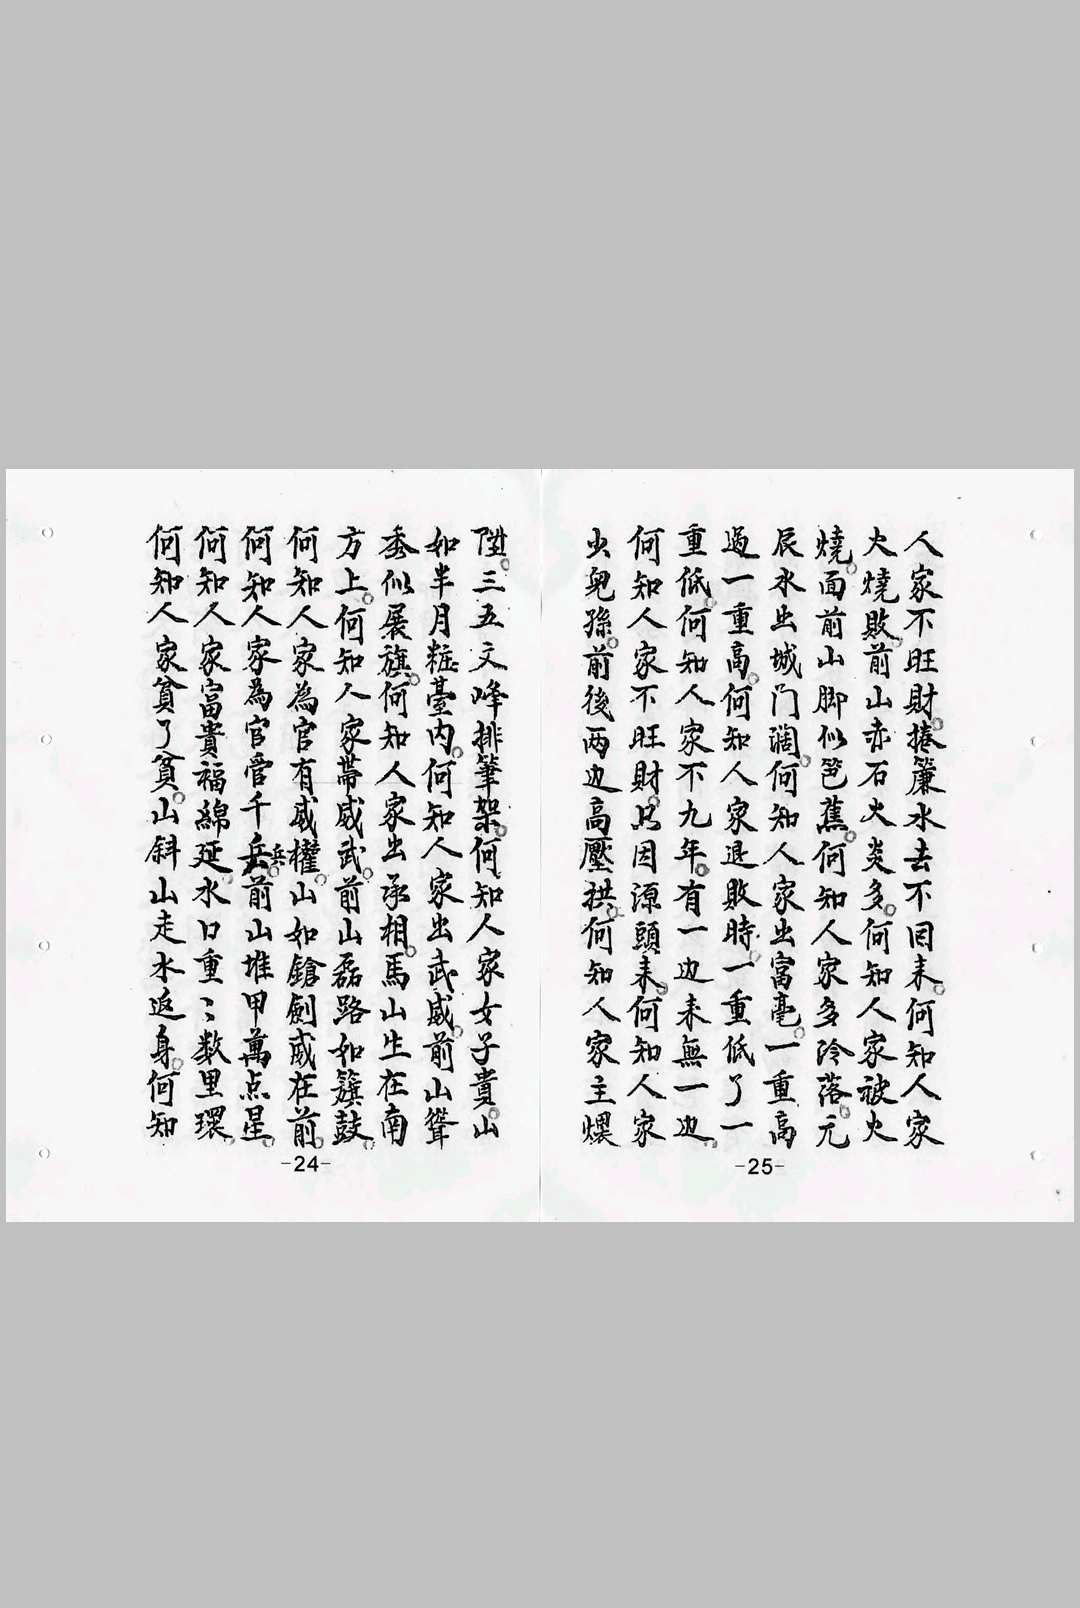 陞。三五文峰排筆架。何知人家女子貴。山
如半月粧臺内。何知人家出武威。前山聳
秀似展旗。何知人家出承相。馬山生在南
方上。何知人家帶威武。前山磊路如簱鼓。
何知人家為官有威權。山如鎗劍威在前。
何知人家為官管千兵兵。前山堆甲萬点星。
何知人家富貴福綿延。水口重〻数里環。
何知人家貧了貧。山斜山走水返身。何知
-24-
人家不旺財。捲簾水去不回来。何知人家
火燒敗。前山赤石火炎多。何知人家被火
燒。面前山脚似笆蕉。何知人家多冷落。元
辰水出城门濶。何知人家出富毫。一重高
過一重高。何知人家退敗時。一重低了一
重低。何知人家不九年。有一边来無一边。
何知人家不旺財。只因源頭来。何知人家
少兒孫。前後两边高壓拱。何知人家主煨
-25-